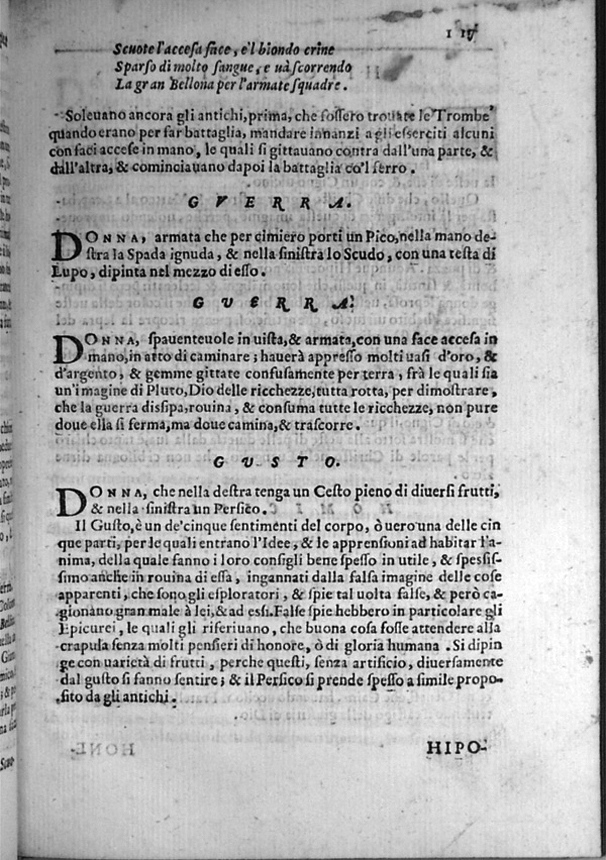 Scuote l'accesa face, e'l biondo crine
Sparso di molto sangue, e uà scorrendo
La gran Bellona per l'armate squadre.
Soleuano ancora gli antichi, prima, che fossero trouate le Trombe
quando erano per far battaglia, mandare innanzi a gli esserciti alcuni
con faci accese in mano, le quali si gittauano contra dall'una parte, &
dall'altra, & cominciauano dapoi la battaglia co'l ferro.
GVERRA.
DONNA, armata che per cimiero porti un Pico, nella mano de-
stra la Spada ignuda, & nella sinistra lo Scudo, con una testa di
Lupo, dipinta nel mezzo di esso.
GVERRA.
DONNA, spauenteuole in uista, & armata, con una face accesa in
mano, in atto di caminare; hauerà appresso molti uasi d'oro, &
d'argento, & gemme gittate confusamente per terra, frà le quali sia
un'imagine di Pluto, Dio delle ricchezze, tutta rotta, per dimostrare,
che la guerra dissipa, rouina, & consuma tutte le ricchezze, non pure
doue ella si ferma, ma doue camina, & trascorre.
GVSTO.
DONNA, che nella destra tenga un Cesto pieno di diuersi frutti,
& nella sinistra un Persico.
Il Gusto, è un de'cinque sentimenti del corpo, ò uero una delle cin
que parti, per le quali entrano l'Idee, & le apprensioni ad habitar l'a-
nima, della quale fanno i loro consigli bene spesso in utile, & spessis-
simo anche in rouina di essa, ingannati dalla falsa imagine delle cose
apparenti, che sono gli esploratori, & spie tal uolta false, & però ca-
gionano gran male à lei, & ad essi. False spie hebbero in particolare gli
Epicurei, le quali gli riferiuano, che buona cosa fosse attendere alla
crapula senza molti pensieri di honore, ò di gloria humana. Si dipin
ge con uarietà di frutti, perche questi, senza artificio, diuersamente
dal gusto si fanno sentire; & il Persico si prende spesso a simile propo-
sito da gli antichi.
HIPO-